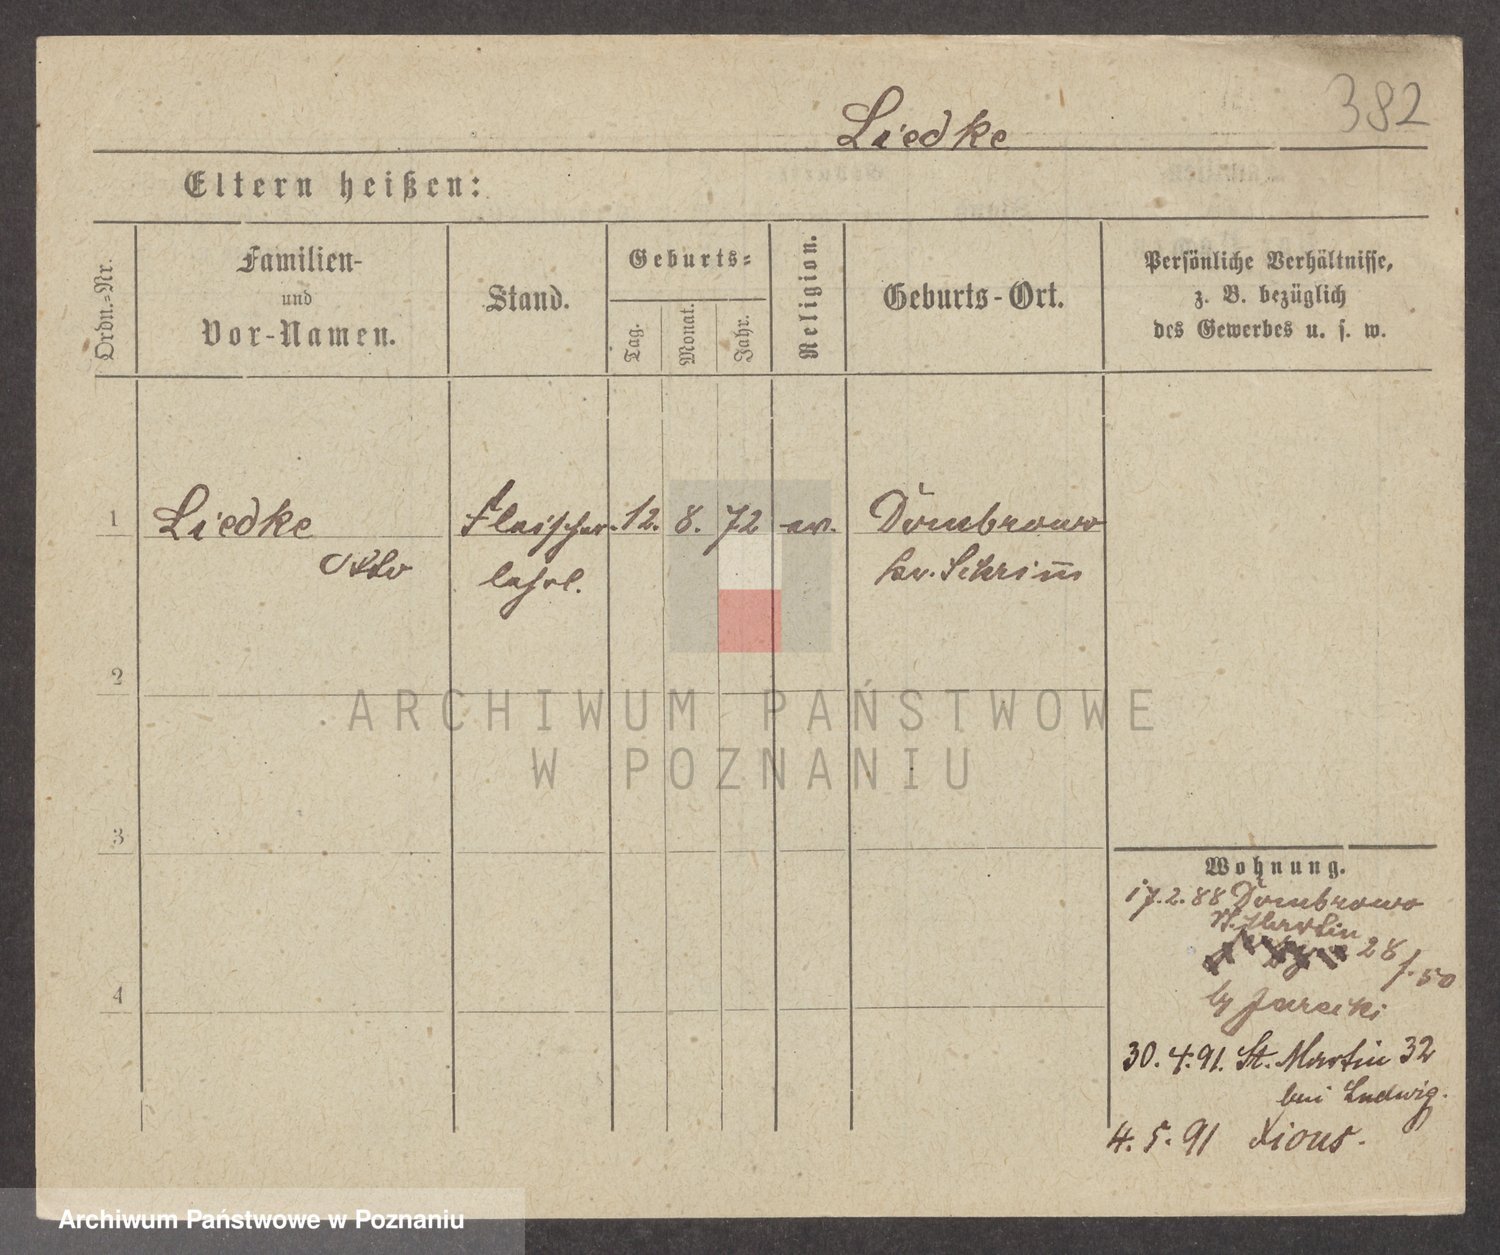 382
Liedke
Eltern heißen:
Ordn.=Nr.
Familien-
und
Vor-Namen.
Stand.
Geburts=
Tag.
Monat.
Jahr.
Religion.
Geburts-Ort.
Persönliche Verhältnisse,
z. B. bezüglich
des Gewerbes u. s. w.
1 Liedke Fleischer 12. 8. 72 ev. Dombrowo
Otto lehrl. kr. Schrim̄
2
3
4
Wohnung.
17.2.88 Dombrowo
St. Martin
28 f. 50
by Jarecki
30.4.91. St. Martin 32
bei Ludwig.
4.5.91 Xions.
ARCHIWUM PAŃSTWOWE
W POZNANIU
Archiwum Państwowe w Poznaniu